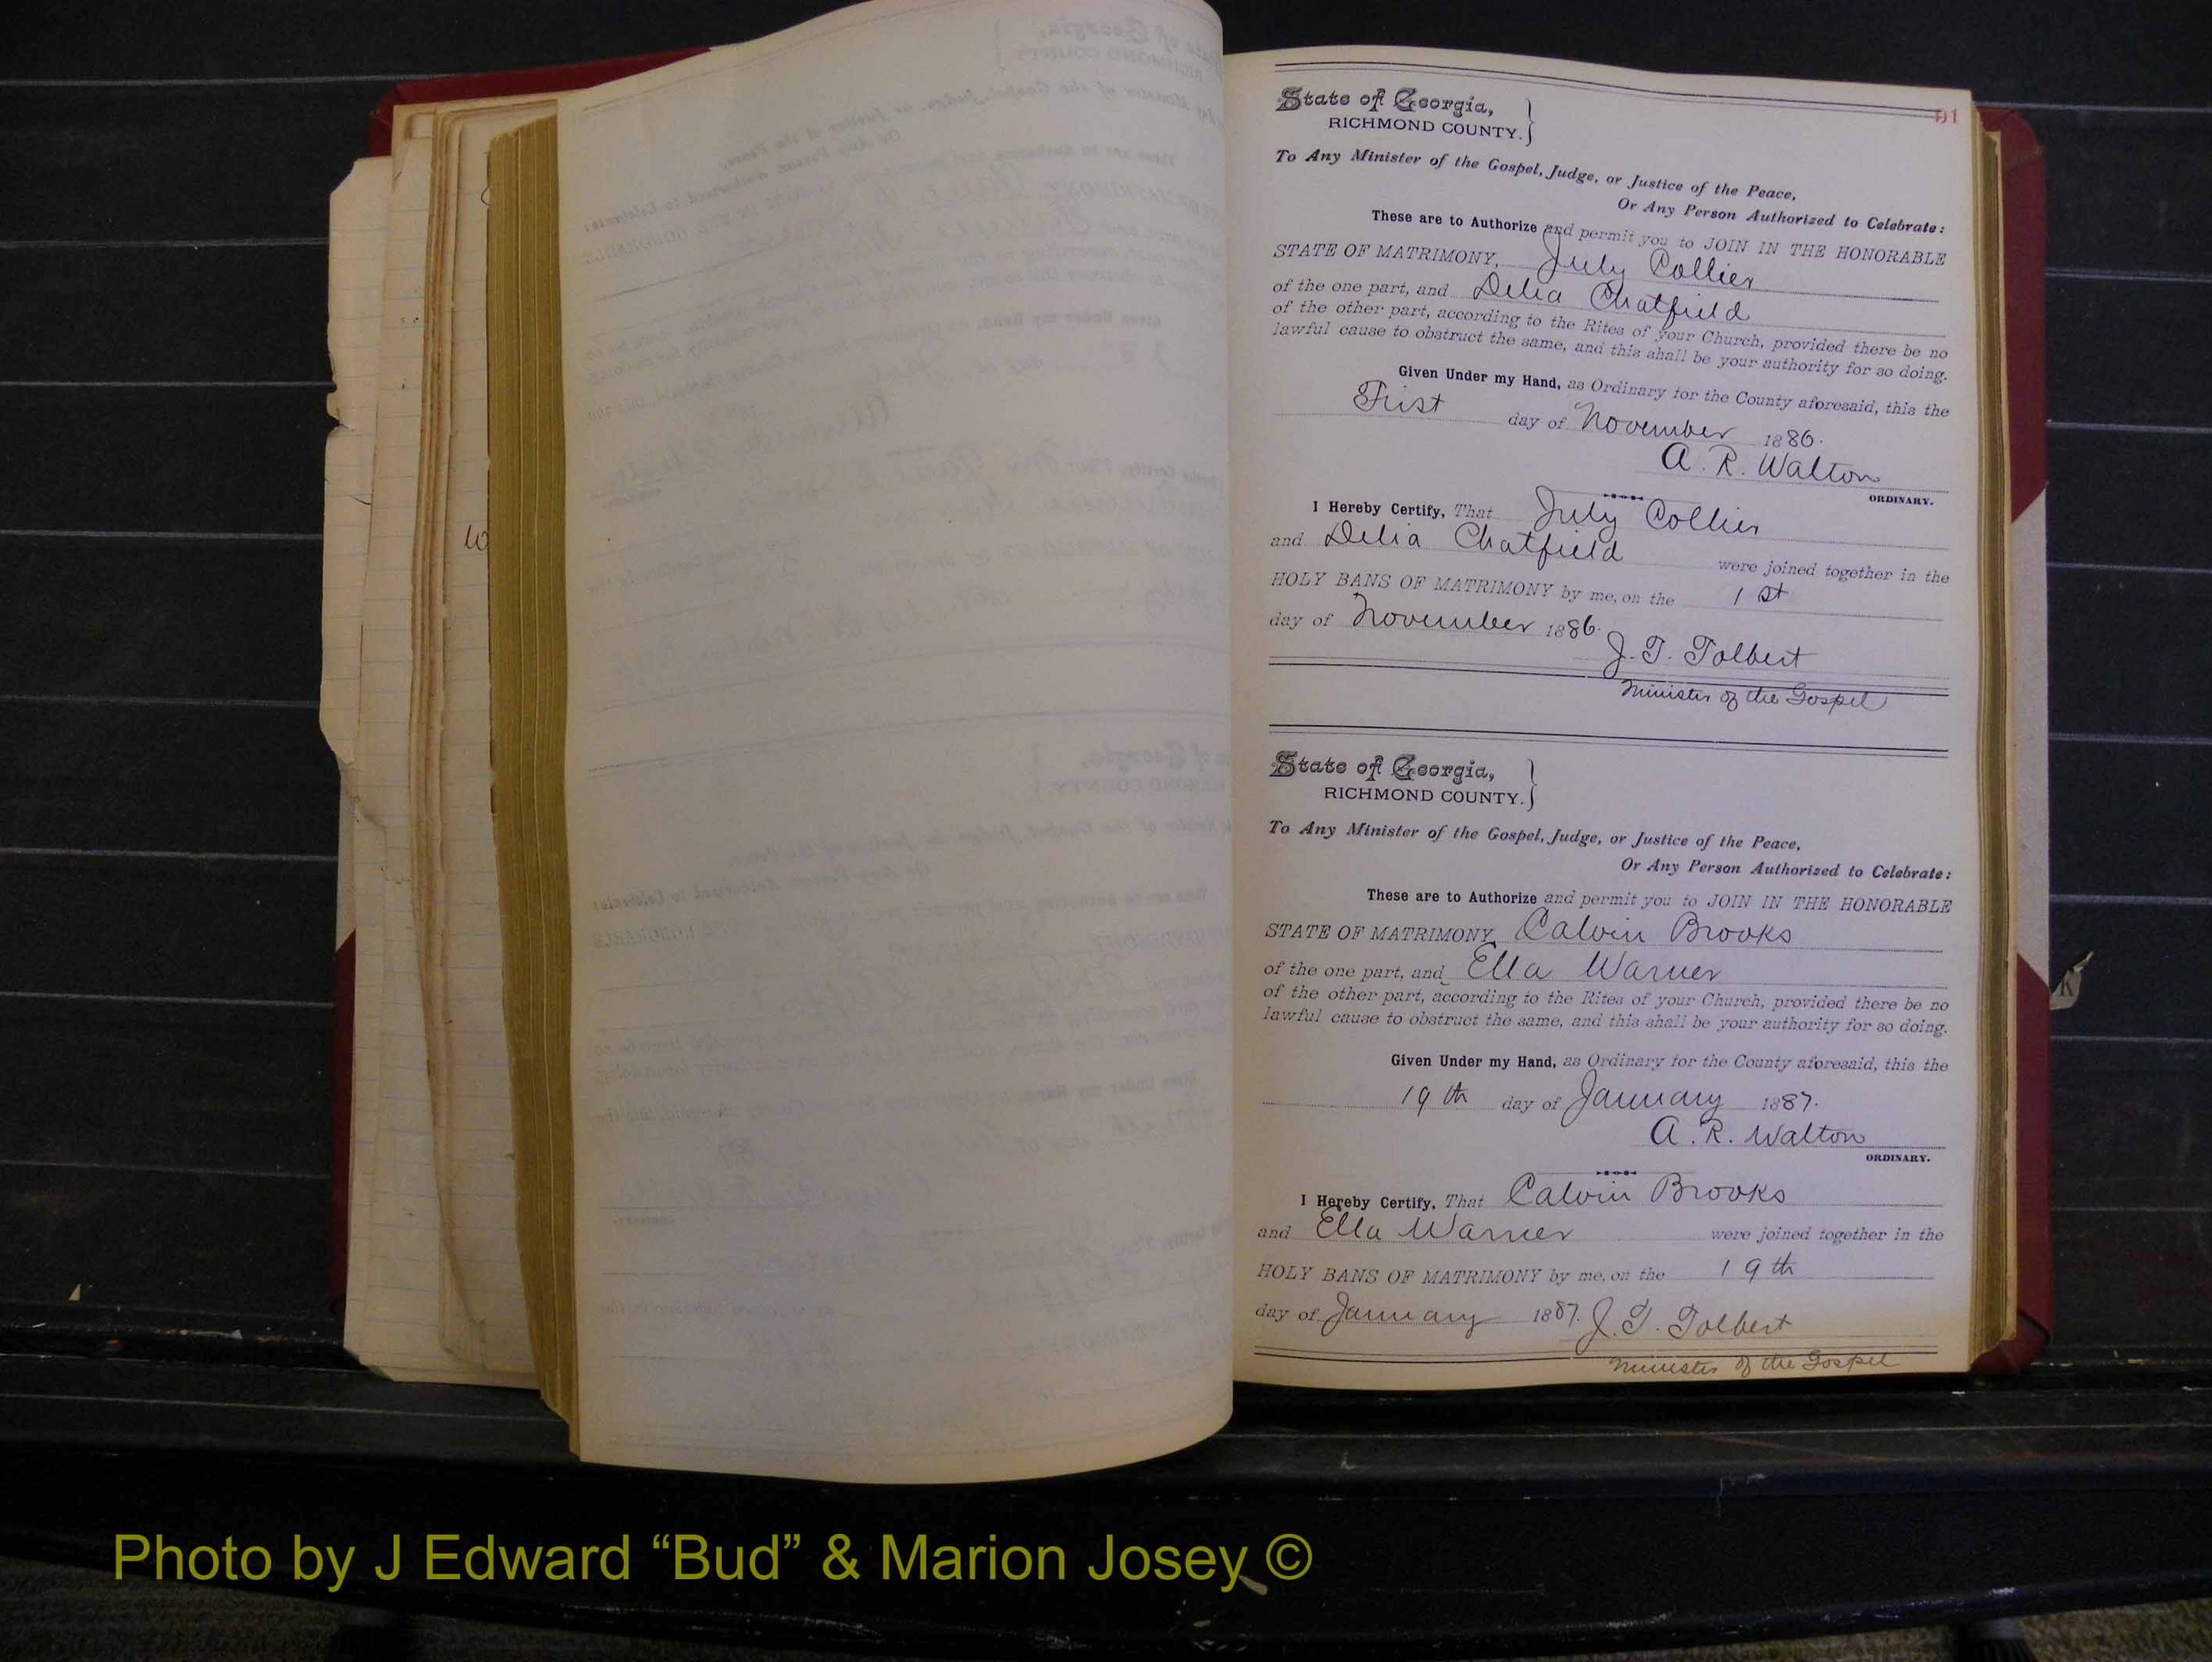 91
State of Georgia,
RICHMOND COUNTY.
To Any Minister of the Gospel, Judge, or Justice of the Peace,
Or Any Person Authorized to Celebrate:
These are to Authorize and permit you to JOIN IN THE HONORABLE
STATE OF MATRIMONY, July Collier
of the one part, and Delia Chatfield
of the other part, according to the Rites of your Church, provided there be no
lawful cause to obstruct the same, and this shall be your authority for so doing.
Given Under my Hand, as Ordinary for the County aforesaid, this the
First day of November 1886.
A. R. Walton
ORDINARY.
I Hereby Certify, That July Collier
and Delia Chatfield were joined together in the
HOLY BANS OF MATRIMONY by me, on the 1st
day of November 1886.
J. T. Tolbert
Minister of the Gospel
State of Georgia,
RICHMOND COUNTY.
To Any Minister of the Gospel, Judge, or Justice of the Peace,
Or Any Person Authorized to Celebrate:
These are to Authorize and permit you to JOIN IN THE HONORABLE
STATE OF MATRIMONY, Calvin Brooks
of the one part, and Ella Warner
of the other part, according to the Rites of your Church, provided there be no
lawful cause to obstruct the same, and this shall be your authority for so doing.
Given Under my Hand, as Ordinary for the County aforesaid, this the
19th day of January 1887.
A. R. Walton
ORDINARY.
I Hereby Certify, That Calvin Brooks
and Ella Warner were joined together in the
HOLY BANS OF MATRIMONY by me, on the 19th
day of January 1887. J. T. Tolbert
Minister of the Gospel
K
Photo by J Edward “Bud” & Marion Josey ©